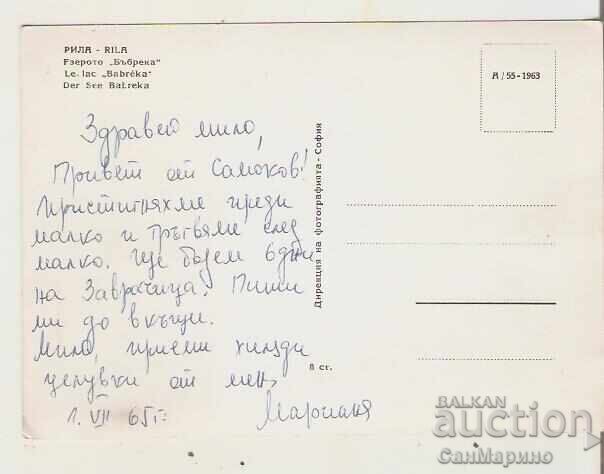 РИЛА - RILA
Езерото „Бъбрека“
Le lac „Babréka“
Der See Babreka
A / 55 - 1963
Здравей мило,
Привет от Самоков!
Пристигнахме преди
малко и тръгвяме след
малко. Ще бъдем 6 дни
на Заврачица. Пиши
ми до вкъщи.
Мила, приеми хиляди
целувки от мен,
1. VII 65 г.
Мариана
Дирекция на фотографията - София
8 ст.
BALKAN
auction
СанМарино